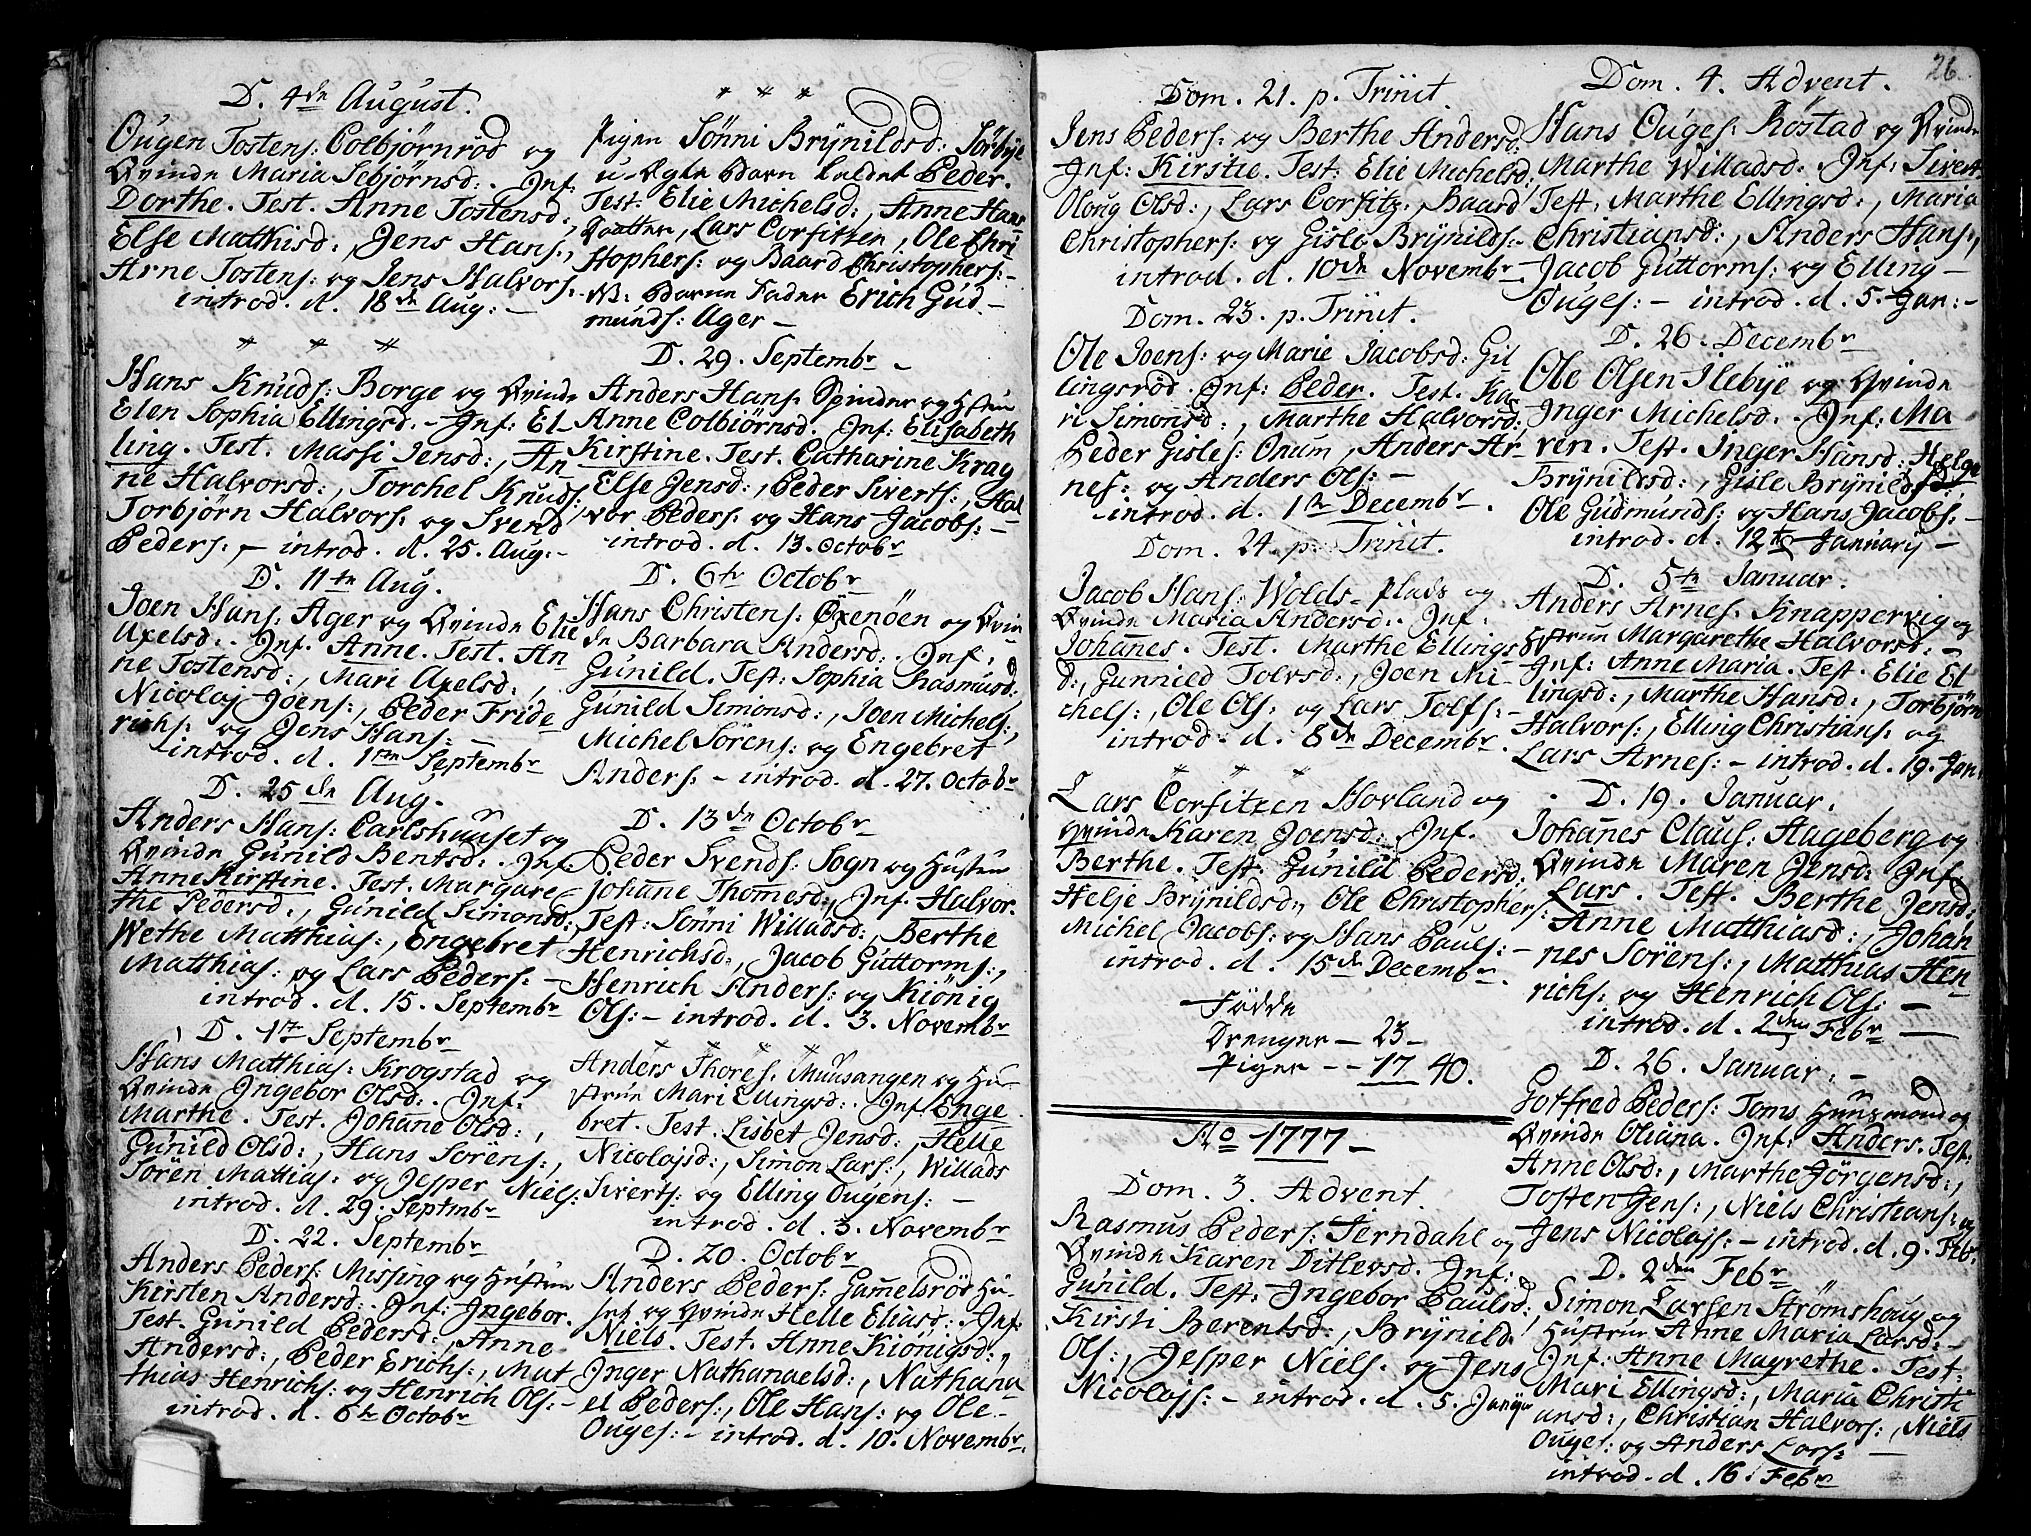 D. 4de August.
Ougen Tostens: Colbjørnrød og
Qvinde Maria Sebjørnsd:. Inf:
Dorthe. Test. Anne Tostensd:,
Else Matthisd:, Jens Hans:,
Arne Tostens: og Jens Halvors:
introd. d. 18de Aug: -
* * *
Hans Knuds: Borge og Qvinde
Elen Sophia Ellingsd. - Inf: El-
ling. Test. Massi Jensd:, An
ne Halvorsd:, Torchel Knuds:
Torbjørn Halvors: og Svend
Peders, - introd. d. 25. Aug: -
D. 11te Aug.
Joen Hans: Ager og Qvinde Elie
Axelsd:. Inf. Anne. Test. An
ne Tostensd:, Mari Axelsd:,
Nicolaj Joens:, Peder Fride
richs: og Jens Hans: -
introd. d. 1ste Septembr
D. 25de Aug.
Anders Hans: Carlshuuset og
Qvinde Gunild Bentsd:. Inf:
Anne Kirstine. Test. Margare
the Pedersd:, Gunild Simonsd:
Wethe Matthias:, Engebret
Matthias: og Lars Peders: -
introd. d. 15. Septembr
D. 1te Septembr
Hans Matthias: Krogstad og
Qvinde Ingebor Olsd:. Inf:
Marthe. Test. Johane Olsd:,
Gunild Olsd:, Hans Sorens:,
Soren Mattias: og Jesper Niels:
introd. d. 29. Septmbr
D. 22. Septembr
Anders Peders: Missing og Hustrue
Kirsten Andersd:. Inf: Ingebor.
Test. Gunild Pedersd:, Anne
Andersd:, Peder Erichs:, Mat
thias Henrichs: og Henrich Ols: -
introd. d. 6te Octobr
* * *
Pigen Sønni Brynildsd: Sørbye
u-Ægte Barn kaldet Peder.
Test: Elie Michelsd:, Anne Hans
Daatter, Lars Corfitzen, Ole Chri
stophers: og Baard Christophers: -
NB: Barne Fader Erich Gud-
munds: Ager -
D. 29. Septembr -
Anders Hans: Spinder og Hstru
Anne Colbiørnsd. Inf: Elisabeth
Kirstine. Test. Catharine Krag
Else Jensd:, Peder Siverts:, Hal-
vor Peders: og Hans Jacobs: -
introd. d. 13. Octobr
D. 6te Octobr
Hans Christens: Oxenøen og Qvin
de Barbara Andersd:. Inf:
Gunild. Test: Sophia Rasmusd:
Gunild Simonsd:, Joen Michels:,
Michel Sørens: og Engebret
Anders: - introd. d. 27. Octobr
D. 13de Octobr
Peder Svends: Sogn og Hustru
Johane Thomesd:, Inf. Halvor.
Test: Sønni Willadsd:, Berthe
Henrichsd:, Jacob Guttorms:,
Henrich Anders: og Kiønig
Ols: - introd. d. 3. Novembr
* * * *
Anders Thores: Muusangen og Hu-
strue Mari Ellingsd:. Inf. Enge
bret. Test. Lisbet Jensd:, Helle
Nicolajsd:, Simon Lars:, Willads
Siverts: og Elling Ougens: -
introd. d. 3. Novembr
D. 20. Octobr
Anders Peders: Gamelsrød Hu-
set og Qvinde Helle Eliasd:. Inf:
Niels. Test. Anne Kiönigsd:,
Inger Nathanaelsd:, Nathana-
el Peders:, Ole Hans: og Ole-
Ouges: - introd. d. 10. Novembr.
Dom. 21. p. Trinit.
Jens Peders: og Berthe Andersd:
Inf: Kirstie. Test: Elie Michelsd:
Oloug Olsd:, Lars Corfitz., Baard
Christophers: og Gisle Brynilds: -
introd. d. 10de Novembr
Dom. 23. p. Trinit.
Ole Joens: og Marie Jacobsd: Gil
lingsrød. Inf: Peder. Test. Ka
ri Simonsd:, Marthe Halvorsd:
Peder Gisles: Onum, Anders Ar-
nes: og Anders Ols: -
introd. d. 1te Decembr.
Dom. 24. p. Trinit.
Jacob Hans: Wolds-plads og
Qvinde Maria Andersd:. Inf:
Johanes. Test. Marthe Ellings
d:, Gunnied Tolvsd:, Joen Mi-
chels:, Ole Ols: og Lars Tolfs: -
introd. d. 8de Decembr.
* * *
Lars Corfitzen Hovland og
Qvinde Karen Joensd:. Inf.
Berthe. Test: Gunild Pedersd:
Helje Brynildsd:, Ole Christophers:
Michel Jacobs: og Hans Pauls: -
introd. d. 15de Decembr.
Fødde
Drenger - 23 -
Piger - - 17 40.
Ao 1777 -
Dom. 3. Advent.
Rasmus Peders: Jerndahl og
Qvinde Karen Ditlevsd. Inf:
Gunild. Test: Ingebor Paulsd:,
Kirsti Berentsd:, Brynild
Ols:, Jesper Niels. og Jens
Nicolajs: - introd. d. 5. Janr
26
Dom. 4. Advent.
Hans Ouges: Røstad og Qvinde
Marthe Willadsd:. Inf: Sivert.
Test. Marthe Ellingsd:, Maria
Christiansd:, Anders Hans:,
Jacob Guttorms: og Elling -
Ouges: - introd. d. 5. Jan: -
D. 26. Decembr
Ole Olsen Ilebye og Qvinde
Inger Michelsd:. Inf: Ma
ren. Test. Inger Hansd: Helge
Brynildsd:, Gisle Brynilds:,
Ole Gudmunds: og Hans Jacobs: -
introd. d. 12te January -
D. 5te Januar.
Anders Arnes. Knappervig og
Hstrue Margarethe Halvorsd: -
Inf: Anne Maria. Test. Elie El
lingsd:, Marthe Hansd:, Torbjørn
Halvors:, Elling Christians: og
Lars Arnes: - introd. d. 19. Jan:
D. 19. Januar.
Johanes Claus: Hageberg og
Qvinde Maren Jensd: Inf:
Lars. Test. Berthe Jensd:
Anne Matthiasd:, Johan
nes Sörens:, Matthias Hen
richs: og Henrich Ols: -
introd. d. 2den Febr -
D. 26. Januar. -
Gotfred Peders: Toms Huusmand og
Qvinde Oliana. Inf: Anders. Test:
Anne Olsd:, Marthe Jörgensd:,
Tosten Jens:, Niels Christians: og
Jens Nicolajs: - introd. d. 9. Febr
D. 2den Febr
Simon Larsen Strömshoug og
Hustrue Anne Maria Larsd: -
Inf: Anne Magrethe. Test:
Mari Ellingsd:, Maria Christi
ansd:, Christian Halvors:, Niels
Ouges: og Anders Lars: -
introd. d. 16. Febr